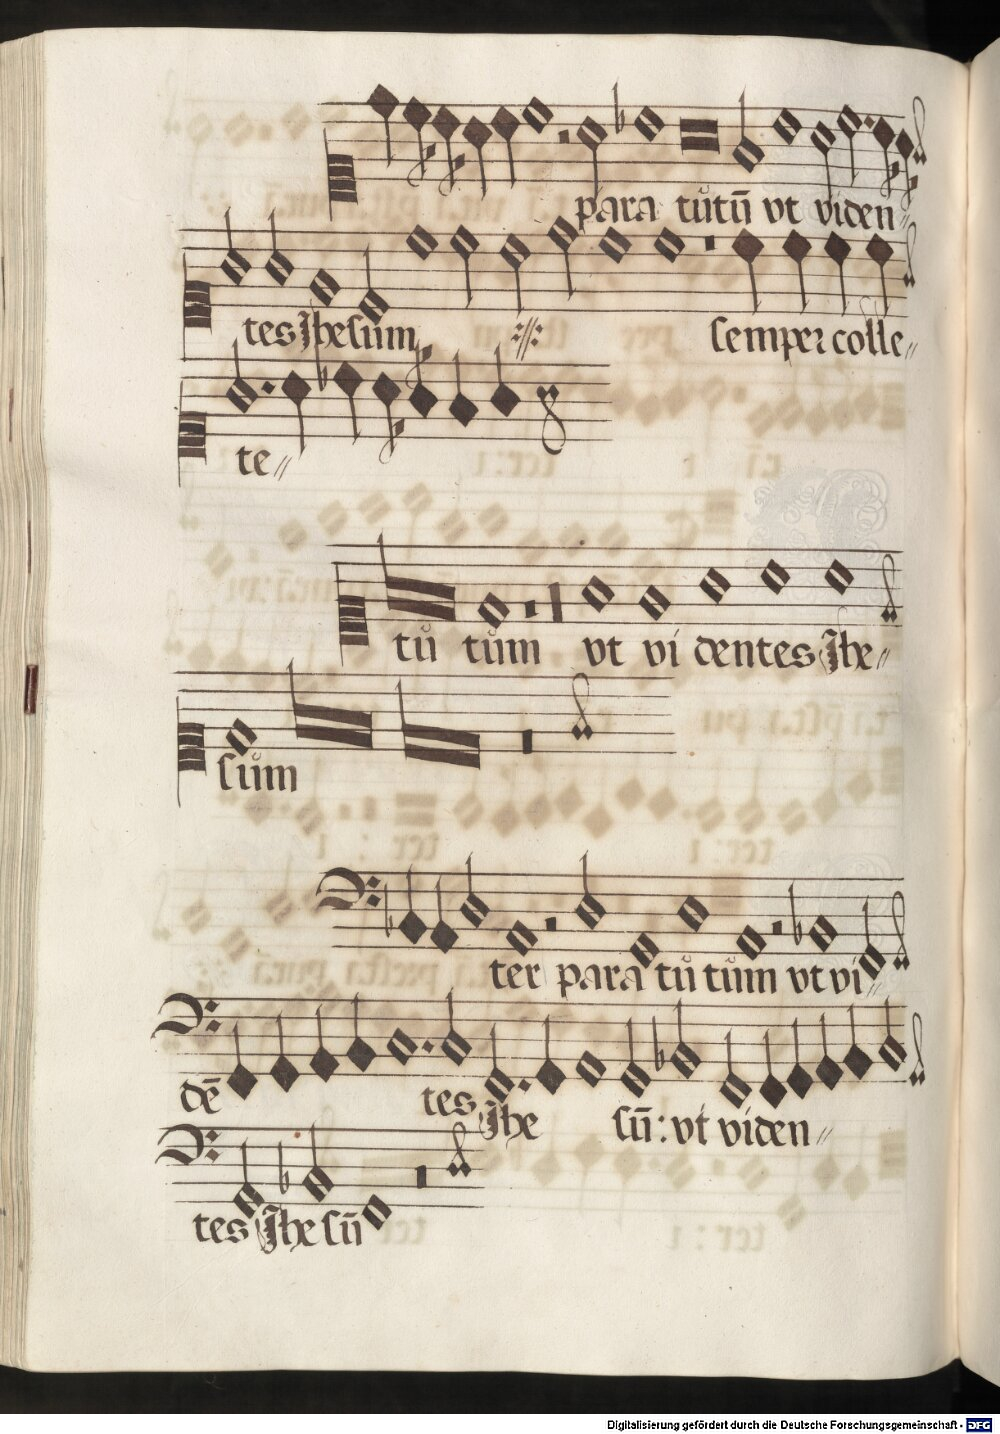 para tutū vt viden
tes Jhesum semper colle
te
tu tum vt vi dentes Jhe
sum
ter para tu tum vt vi
dē tes Jhe sū: vt viden
tes Jhe sū
Digitalisierung gefördert durch die Deutsche Forschungsgemeinschaft - DFG